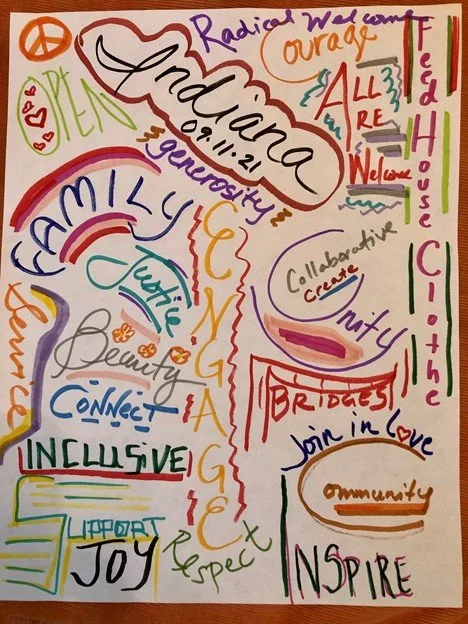 Radical Welcome
Courage
OPEN
Indiana
09.11.21
ALL
ARE
Welcome
Feed House Clothe
generosity
FAMILY
Justice
ENGAGE
Collaborative
create
Unity
Service
Beauty
CONNECT
BRIDGES
Join in Love
INCLUSIVE
Community
SUPPORT
JOY
Respect
INSPIRE